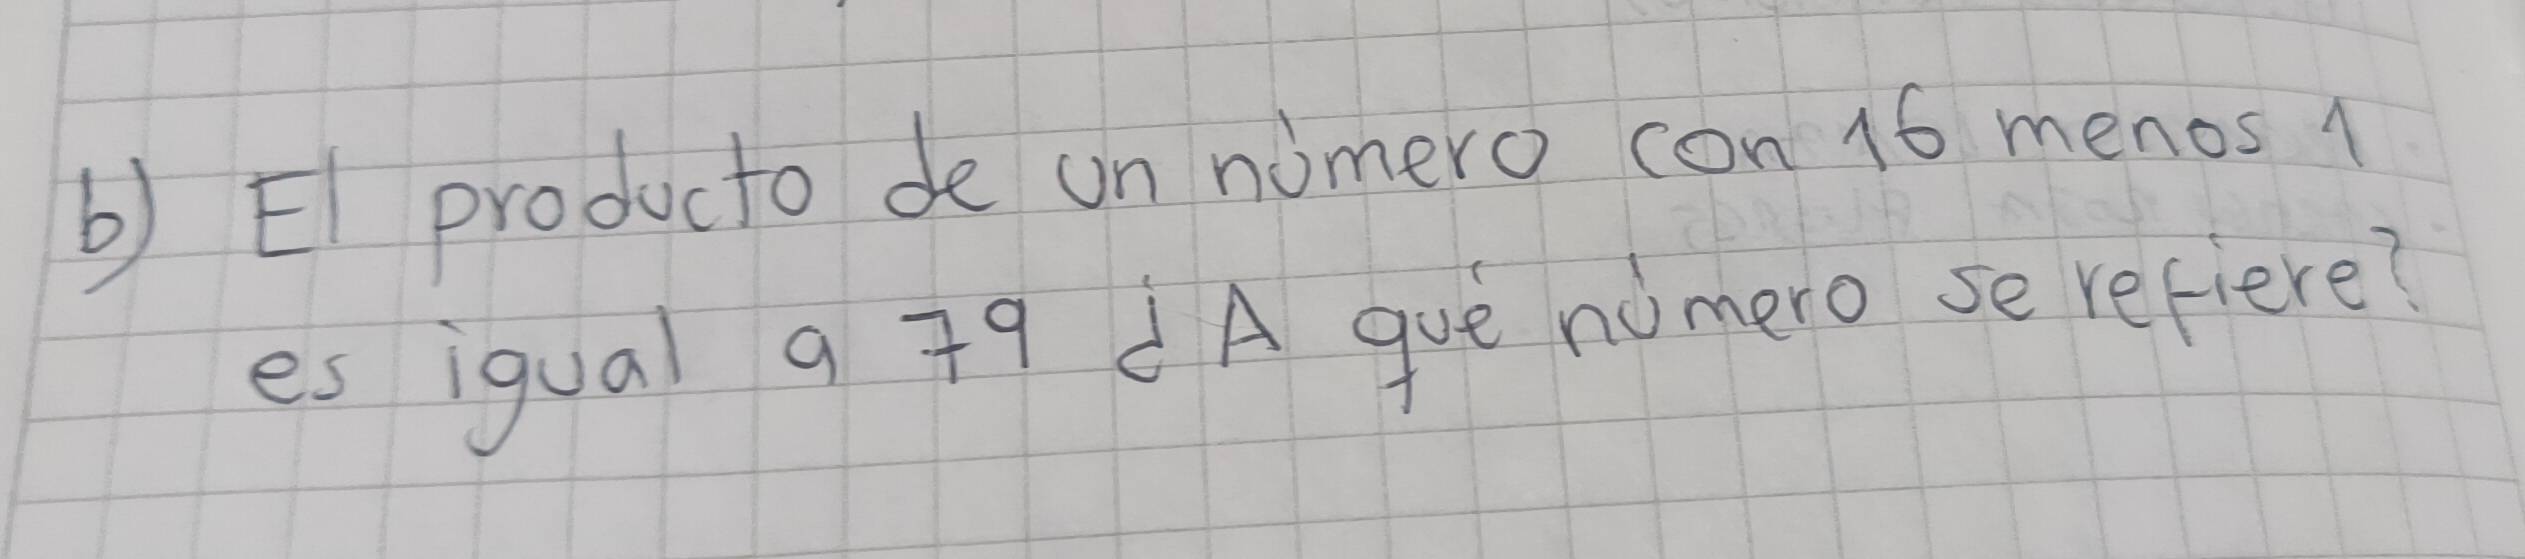 b) El producto de un número con 16 menos 1
es igual a 79 ¿A qué número se refiere?